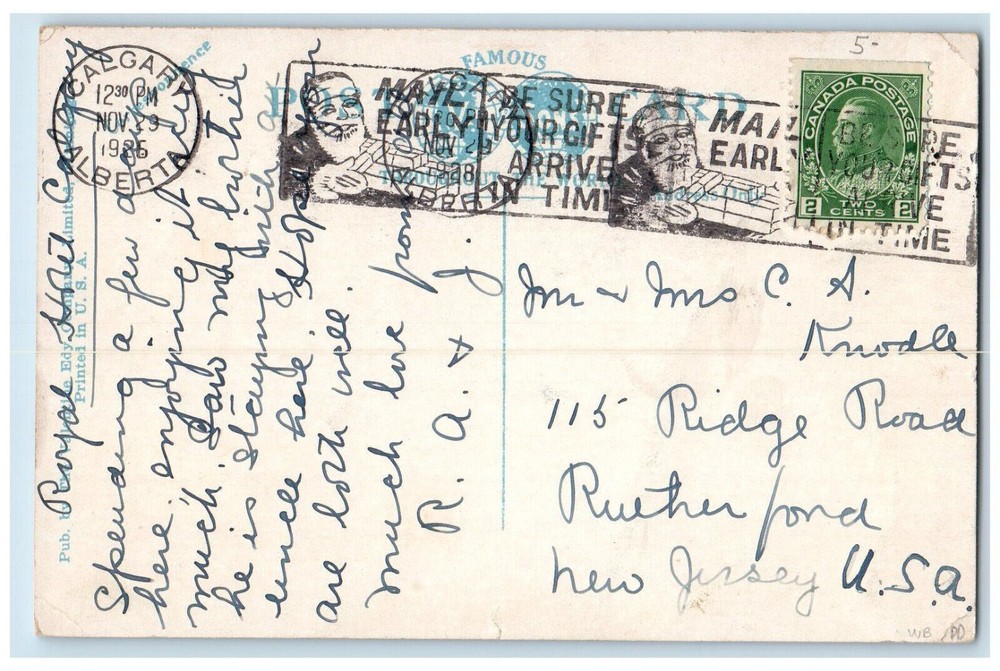 5-
FAMOUS
POST CARD
THROUGHOUT THE WORLD
CALGARY
12 30 PM
NOV 29
ALBERTA
MAIL
EARLY
BE SURE
YOUR GIFTS
ARRIVE
IN TIME
CALGARY
NOV 29
ALBERTA
MAIL
EARLY
BE SURE
YOUR GIFTS
ARRIVE
IN TIME
CANADA POSTAGE
2 TWO CENTS 2
Royal Hotel Calgary
Spending a few days
here. enjoying it very
much. Saw my brother
he is staying with a
uncle here. Hope you
are both well.
Much love from
R. A. & J.
Mr & Mrs C. A.
Knodle
115 Ridge Road
Ruther ford
New Jersey U.S.A.
Pub. by Edy Company Limited,
Printed in U. S. A.
WB DD